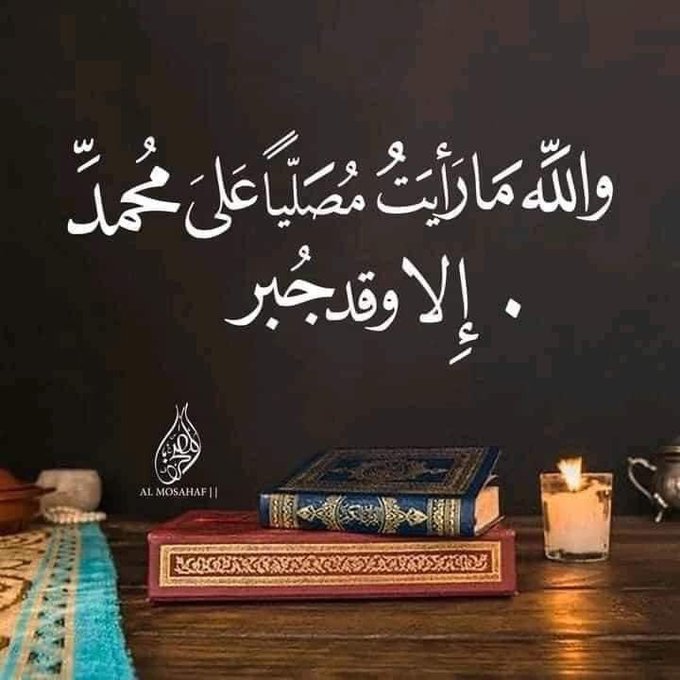 والله مَا رَأيَتُ مُصَلّياً عَلىَ مُحمدِّ
إِلا وقد جُبر .
AL MOSAHAF ||